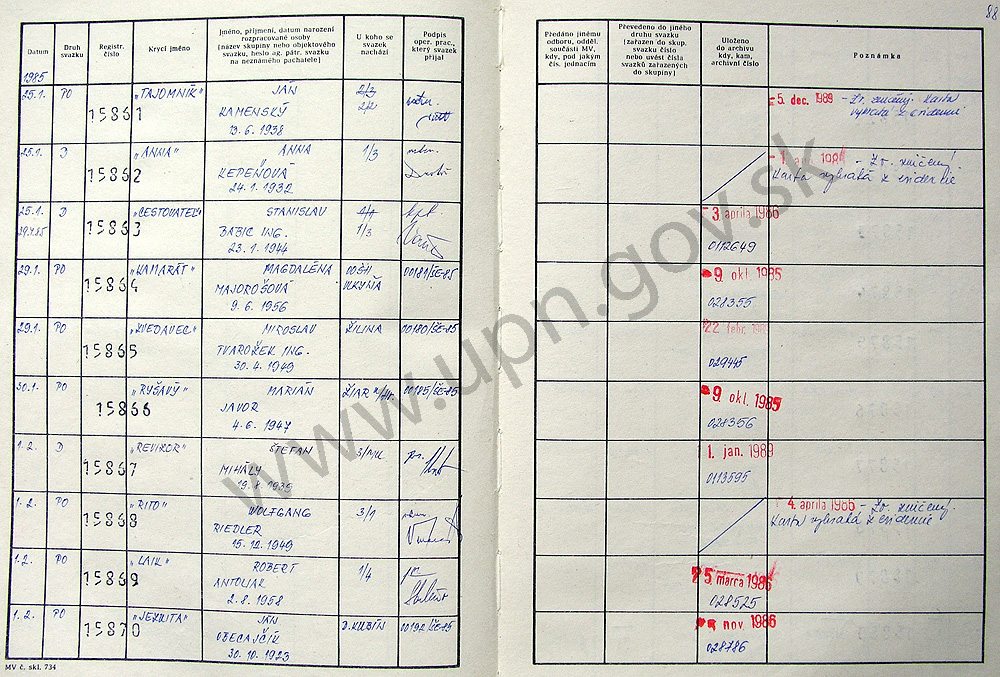 88
Datum
Druh svazku
Registr. číslo
Krycí jméno
Jméno, příjmení, datum narození rozpracované osoby (název skupiny nebo objektového svazku, heslo ag. pátr. svazku na neznámého pachatele)
U koho se svazek nachází
Podpis oper. prac., který svazek přijal
Předáno jinému odboru, odděl. součásti MV, kdy, pod jakým čís. jednacím
Převedeno do jiného druhu svazku (zařazen do skup. svazku číslo nebo uvést čísla svazků zařazených do skupiny)
Uloženo do archivu kdy, kam, archivní číslo
Poznámka
1985
25.1. PO 15861 „TAJOMNÍK" JÁN 2/3
KAMENSKÝ 2/2
13. 6. 1938
5. dec. 1989 - Zv. zničený. Karta
vybratá z evidencie
25.1. D 15862 „ANNA" ANNA 1/3
KEPEŇOVÁ
24. 1. 1932
- Zv. zničený
Karta vybratá z evidencie
25.1. D 15863 „CESTOVATEĽ" STANISLAV
29.4.85 BABIC ING. 1/3
23. 1. 1944
3. apríla 1986
0112649
29.1. PO 15864 „KAMARÁT" MAGDALÉNA OOŠH 00181/ŠE-85
MAJOROŠOVÁ VLKYŇA
9. 6. 1956
9. okl. 1985
028355
29.1. PO 15865 „ZVEDAVEC" MIROSLAV ŽILINA 00180/ŠE-85
TVAROŽEK ING.
30. 4. 1949
22 febr.
029445
30.1. PO 15866 „RYŠAVÝ" MARIÁN ŽIAR n/Hr. 00185/ŠE-85
JAVOR
4. 6. 1947
9. okl. 1985
028356
1. 2. D 15867 „REVIZOR" ŠTEFAN
MIHÁLY
19. 8. 1935
1. jan. 1989
0113595
1. 2. PO 15868 „RITO" WOLFGANG 3/1
RIEDLER
15. 12. 1949
4. apríla 1986 - Zv. zničený.
Karta vybratá z evidencie
1. 2. PO 15869 „LAIK" ROBERT 1/4
ANTOLIAK
2. 8. 1958
5 marca 1986
028525
1. 2. PO 15870 „JEZUITA" JÁN D. KUBÍN 00192/ŠE-85
OBECAJČÍK
30. 10. 1923
nov. 1986
028786
MV č. skl. 734
www.upn.gov.sk